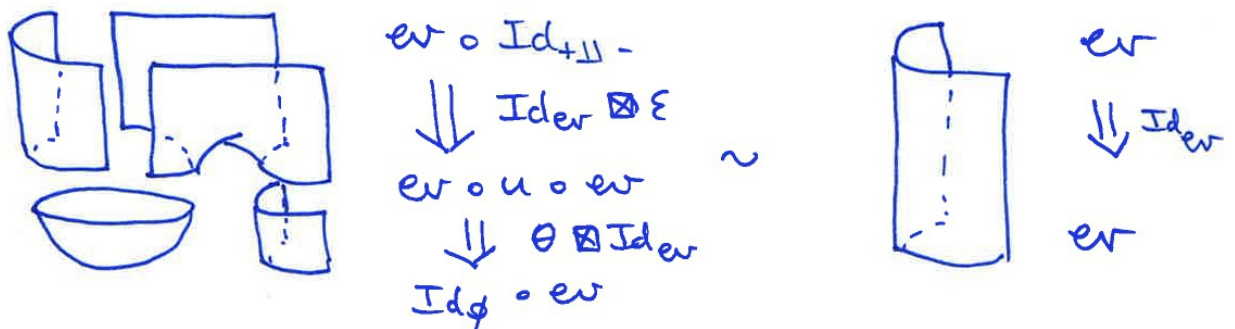 ev ∘ Id₊⊔₋
⇓ Id_ev ⊠ ε
ev ∘ u ∘ ev
⇓ θ ⊠ Id_ev
Id_∅ ∘ ev
~
ev
⇓ Id_ev
ev